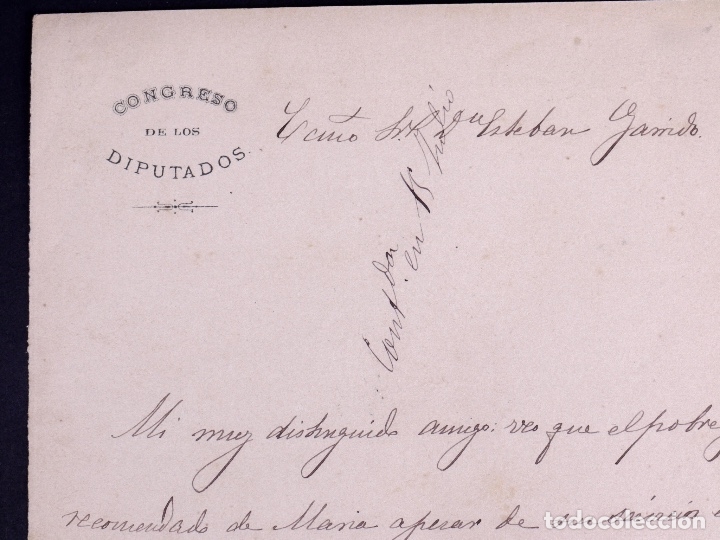 CONGRESO
DE LOS
DIPUTADOS.
Excmo Sr. Dn Esteban Garrido.
Contda
en 15
Mi muy distinguido amigo: veo que el pobre
recomendado de Maria apesar de su
todocoleccion.net